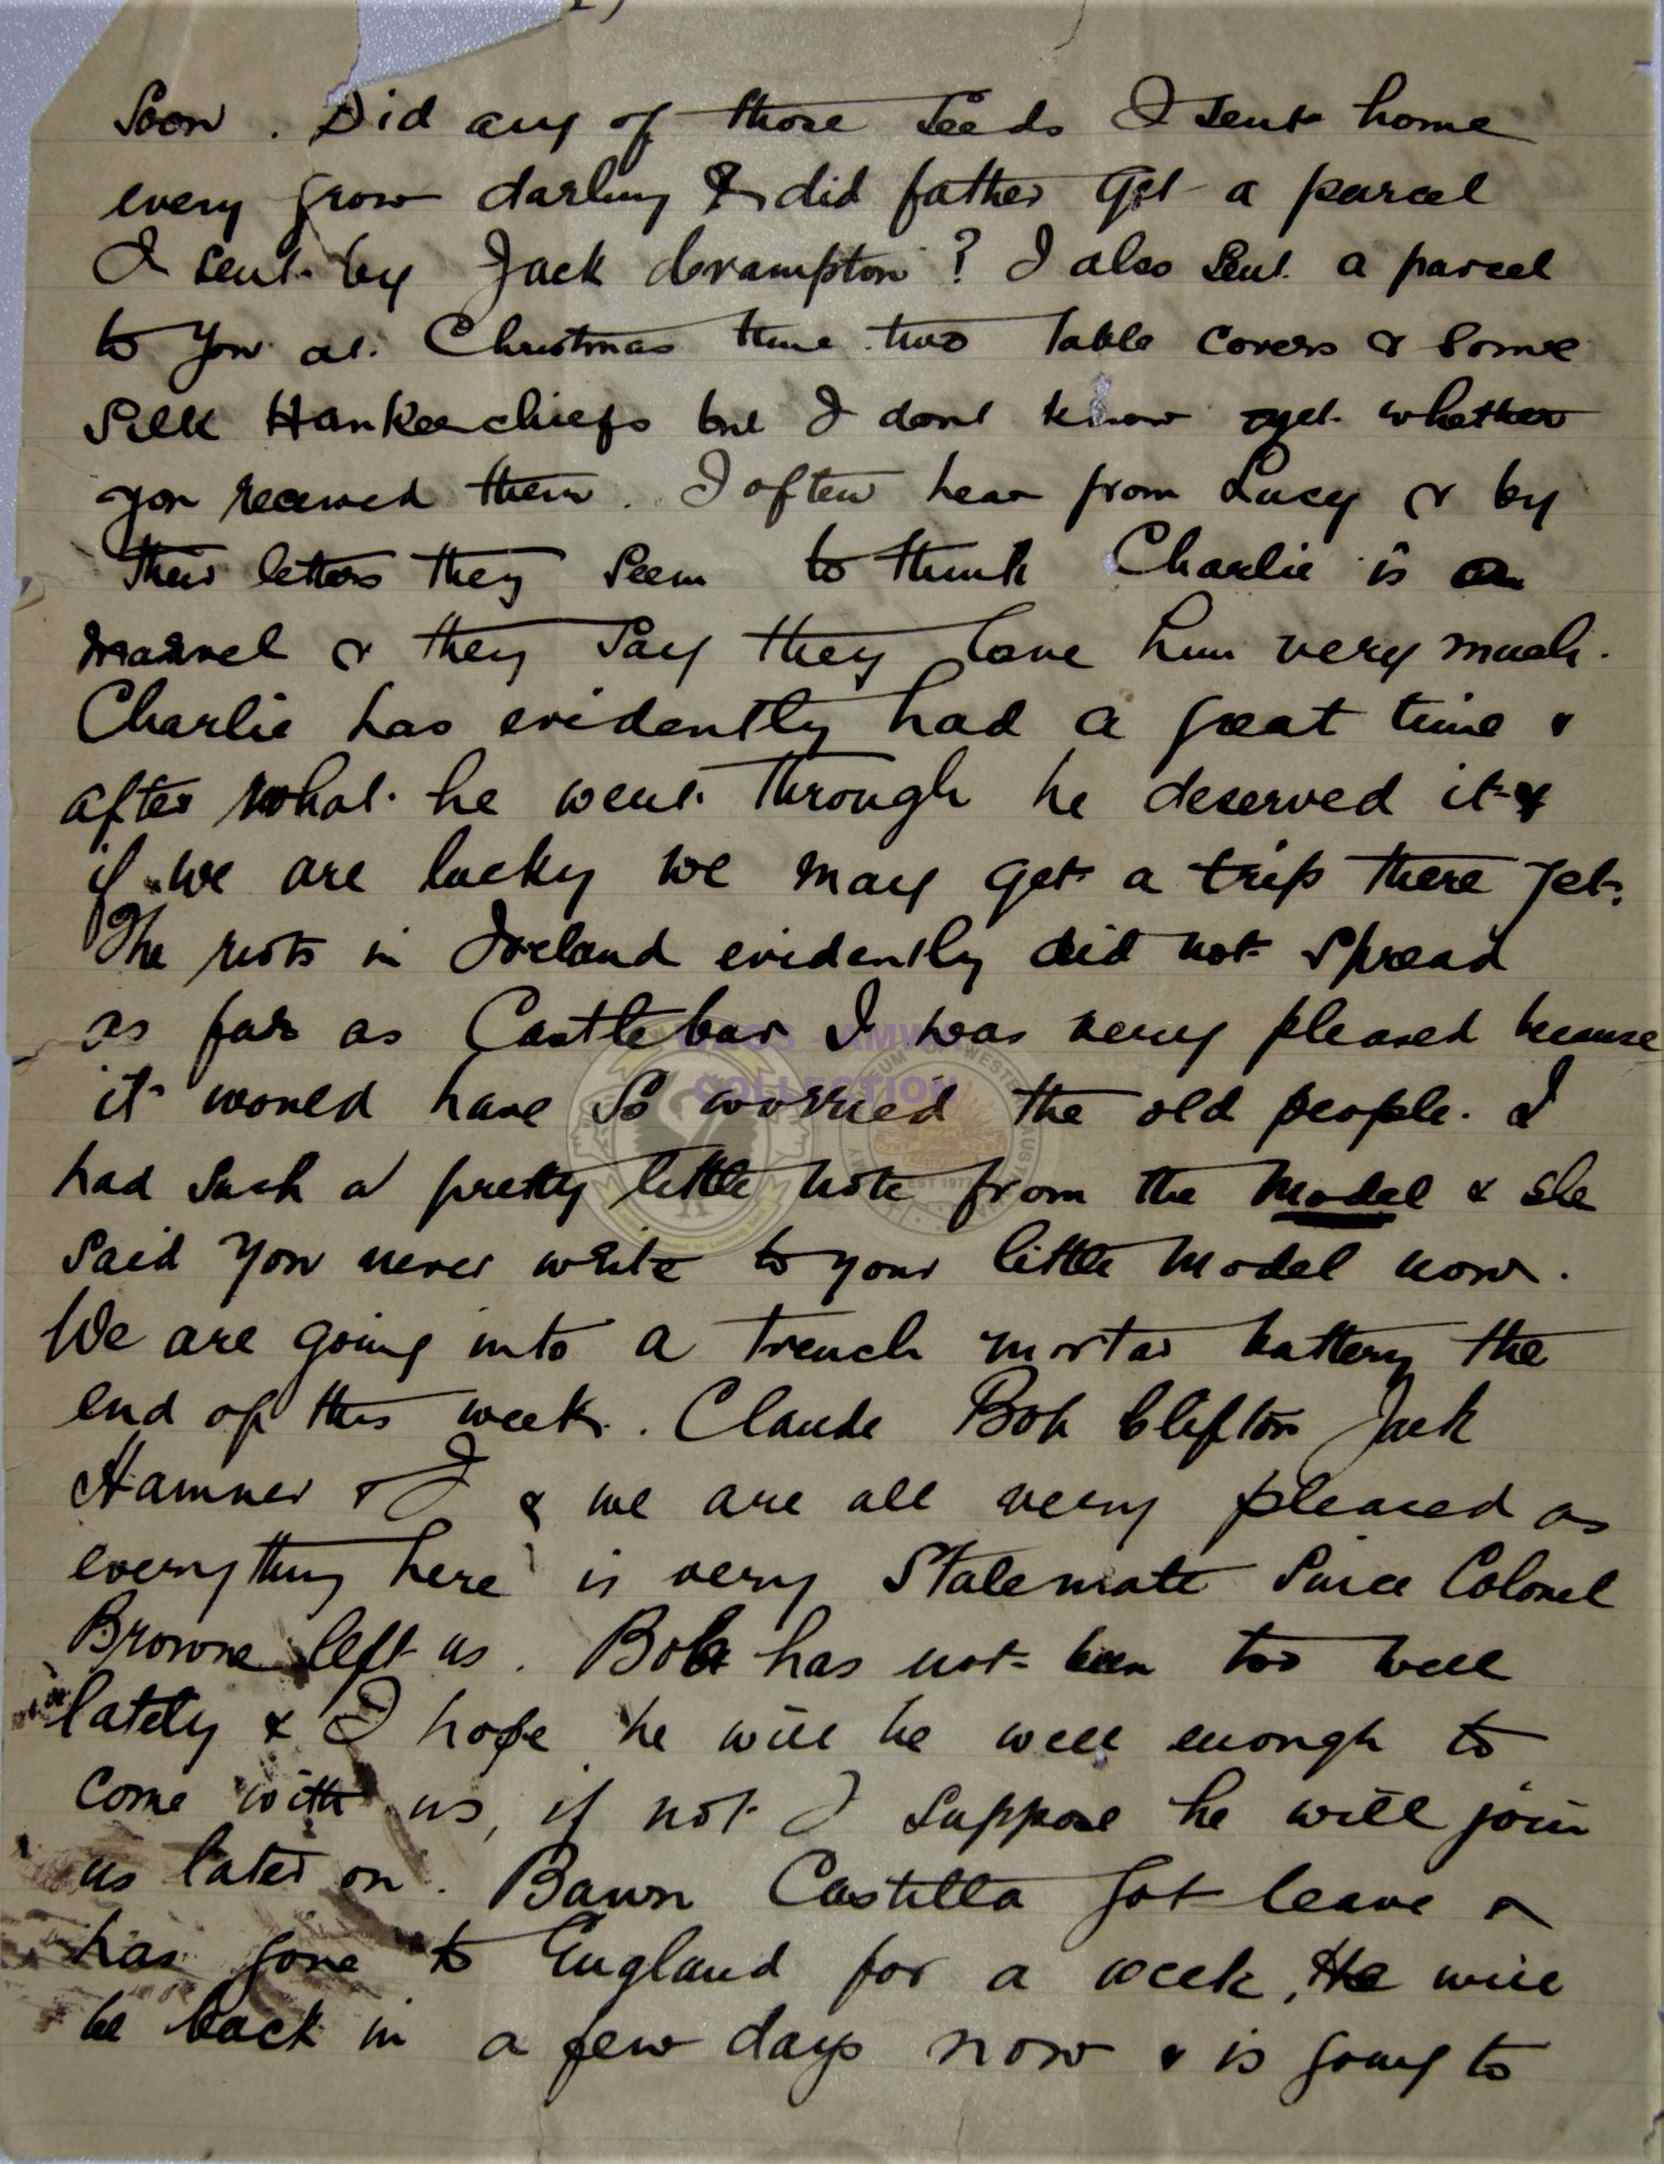 Soon. Did any of those seeds I sent home
every grow darling & did father get a parcel
I sent by Jack Crampton? I also sent a parcel
to you at Christmas time two table covers & some
silk Hankerchiefs but I dont know yet whether
you received them. I often hear from Lucy & by
their letters they seem to think Charlie is a
marvel & they say they love him very much.
Charlie has evidently had a great time &
after what he went through he deserved it &
if we are lucky we may get a trip there yet.
The riots in Ireland evidently did not spread
as far as Castlebar I was very pleased because
it would have so worried the old people. I
had such a pretty little note from the model & she
said you never write to your little model now.
We are going into a trench mortar battery the
end of this week. Claude Bob Clifton Jack
Hamner & I & we are all very pleased as
everything here is very stalemate since Colonel
Browne left us. Bob has not been too well
lately & I hope he will be well enough to
come with us, if not I suppose he will join
us later on. Bawn Castilla got leave &
has gone to England for a week, He will
be back in a few days now & is going to
COLLECTION